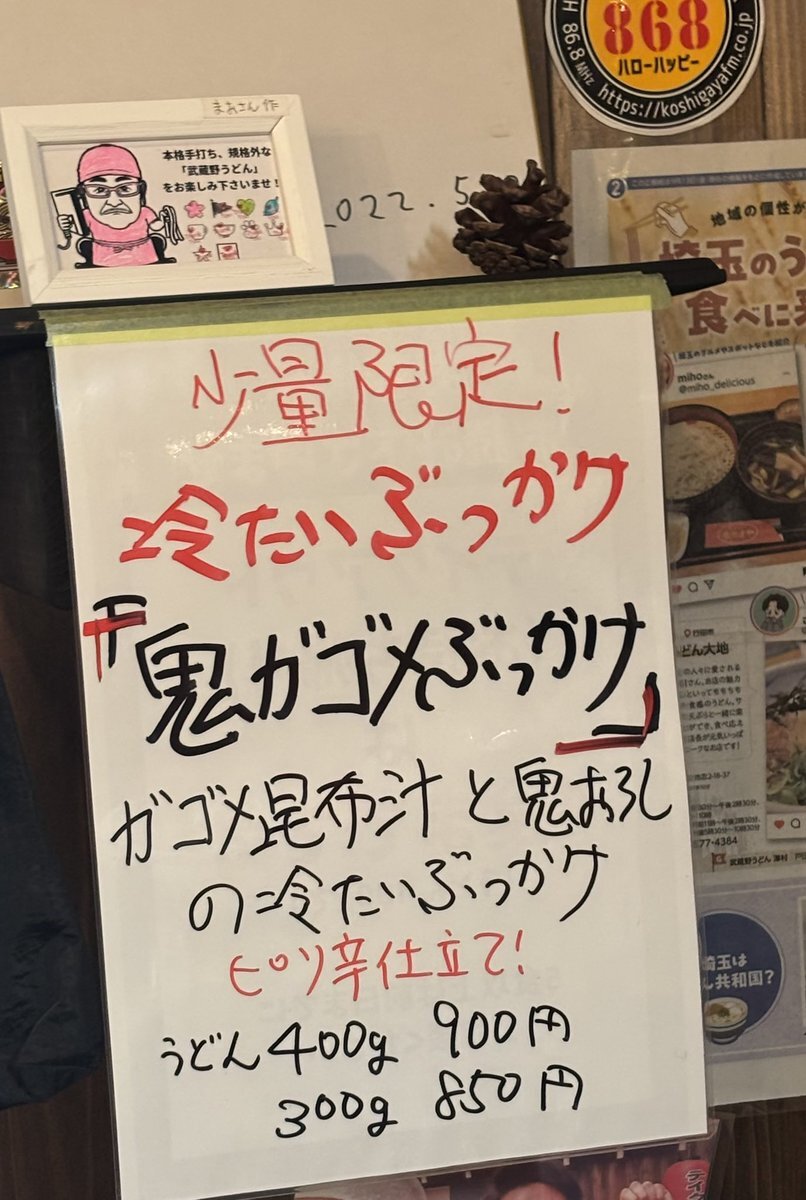 868
ハローハッピー
86.8 MHz https://koshigayafm.co.jp
まあさん作
本格手打ち、規格外な
「武蔵野うどん」
をお楽しみ下さいませ!
2022.5
少量限定!
冷たいぶっかケ
『鬼ガゴメぶっかけ』
ガゴメ昆布汁と鬼おろし
の冷たいぶっかケ
ピリ辛仕立て!
うどん 400g 900円
300g 850円
2
地域の個性が
埼玉のう
食べに
miho さん
@miho_delicious
行田市
どん大地
の人々に愛される
77-4384
武蔵野うどん 澤村
埼玉は
ん共和国?